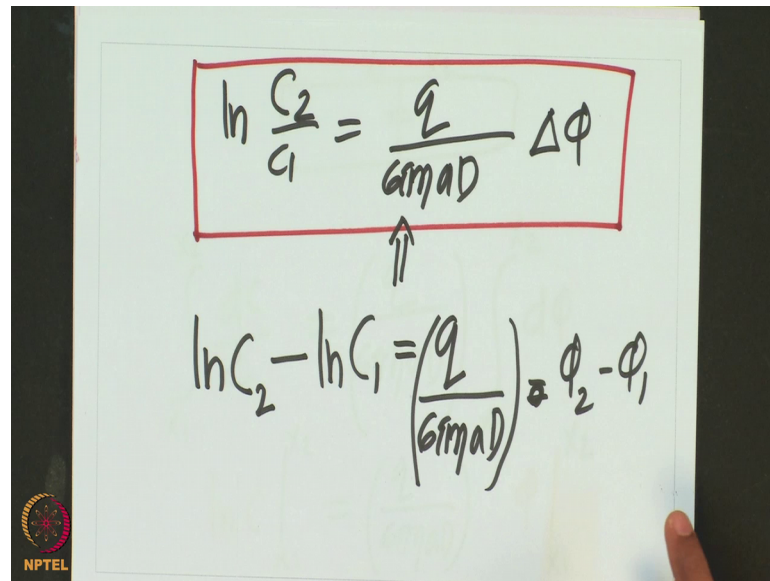 ln C2/C1 = q/6πηaD Δφ
⇑
lnC2 − lnC1 = (q/6πηaD) = φ2 − φ1
NPTEL